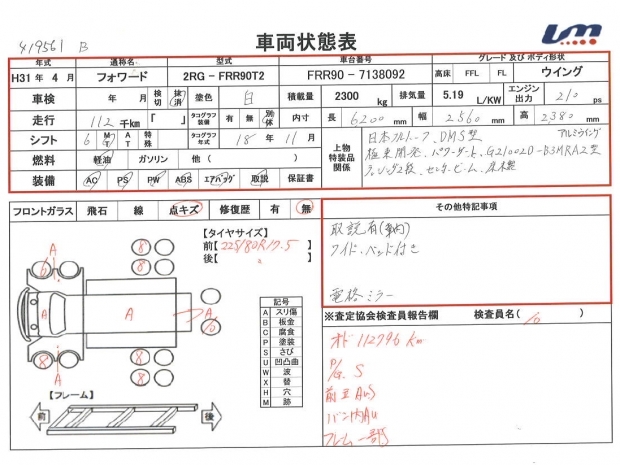 419561 B
車両状態表
LM
年式 通称名 型式 車台番号 グレード及びボディ形状
H31年 4月 フォワード 2RG - FRR90T2 FRR90 - 7138092 高床 FFL FL ウイング
車検 年 月 検切 抹消 塗色 白 積載量 2300 kg 排気量 5.19 L/KW エンジン出力 210 ps
走行 112 千km 「 」 タコグラフ装備 有 無 別体 内寸 長 6200 mm 幅 2560 mm 高 2380 mm
シフト 6 MT AT 特殊 タコグラフキズ 18年 11月 上物特装品関係 日本フルハーフ、DMS型 アルミウイング
燃料 軽油 ガソリン 他( ) 極東開発、パワーゲート、G21002D-B3MRA2型
装備 AC PS PW ABS エアバッグ 取説 保証書 ラッシング2段、セリ
フロントガラス 飛石 線 点キズ 修復歴 有 無
その他特記事項
【タイヤサイズ】
前【225/80R17.5】
後【 〃 】
取説有(車内)
ワイド、ベッド付き
電格ミラー
A A A A A
6 8 8 8 8
記号
A スリ傷
B 板金
C 腐食
P 塗装
S さび
U 凹凸曲
W 波
X 替
H 穴
M 跡
【フレーム】
前 後
※査定協会検査員報告欄 検査員名( )
オド 112796 km
P/G. S
前 AUS
バン内AU
フレーム一部S